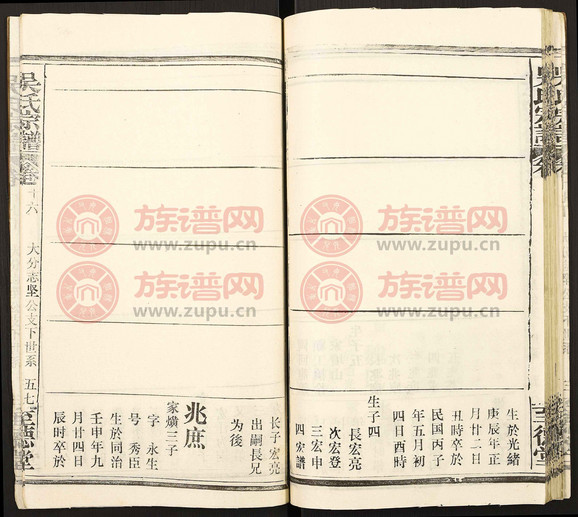 至德堂
生於光緒
庚辰年正
月廿二日
丑時卒於
民國丙子
年五月初
四日酉時
生子四
長宏亮
次宏登
三宏申
四宏譜
长子宏亮
出嗣長兄
为後
兆庶
家爌三子
字永生
号秀臣
生於同治
壬申年九
月廿四日
辰时卒於
吳氏宗譜
十六
大分志坚公支下世系
五七
至德堂
族谱网
www.zupu.cn
族谱网
www.zupu.cn
族谱网
www.zupu.cn
族谱网
www.zupu.cn